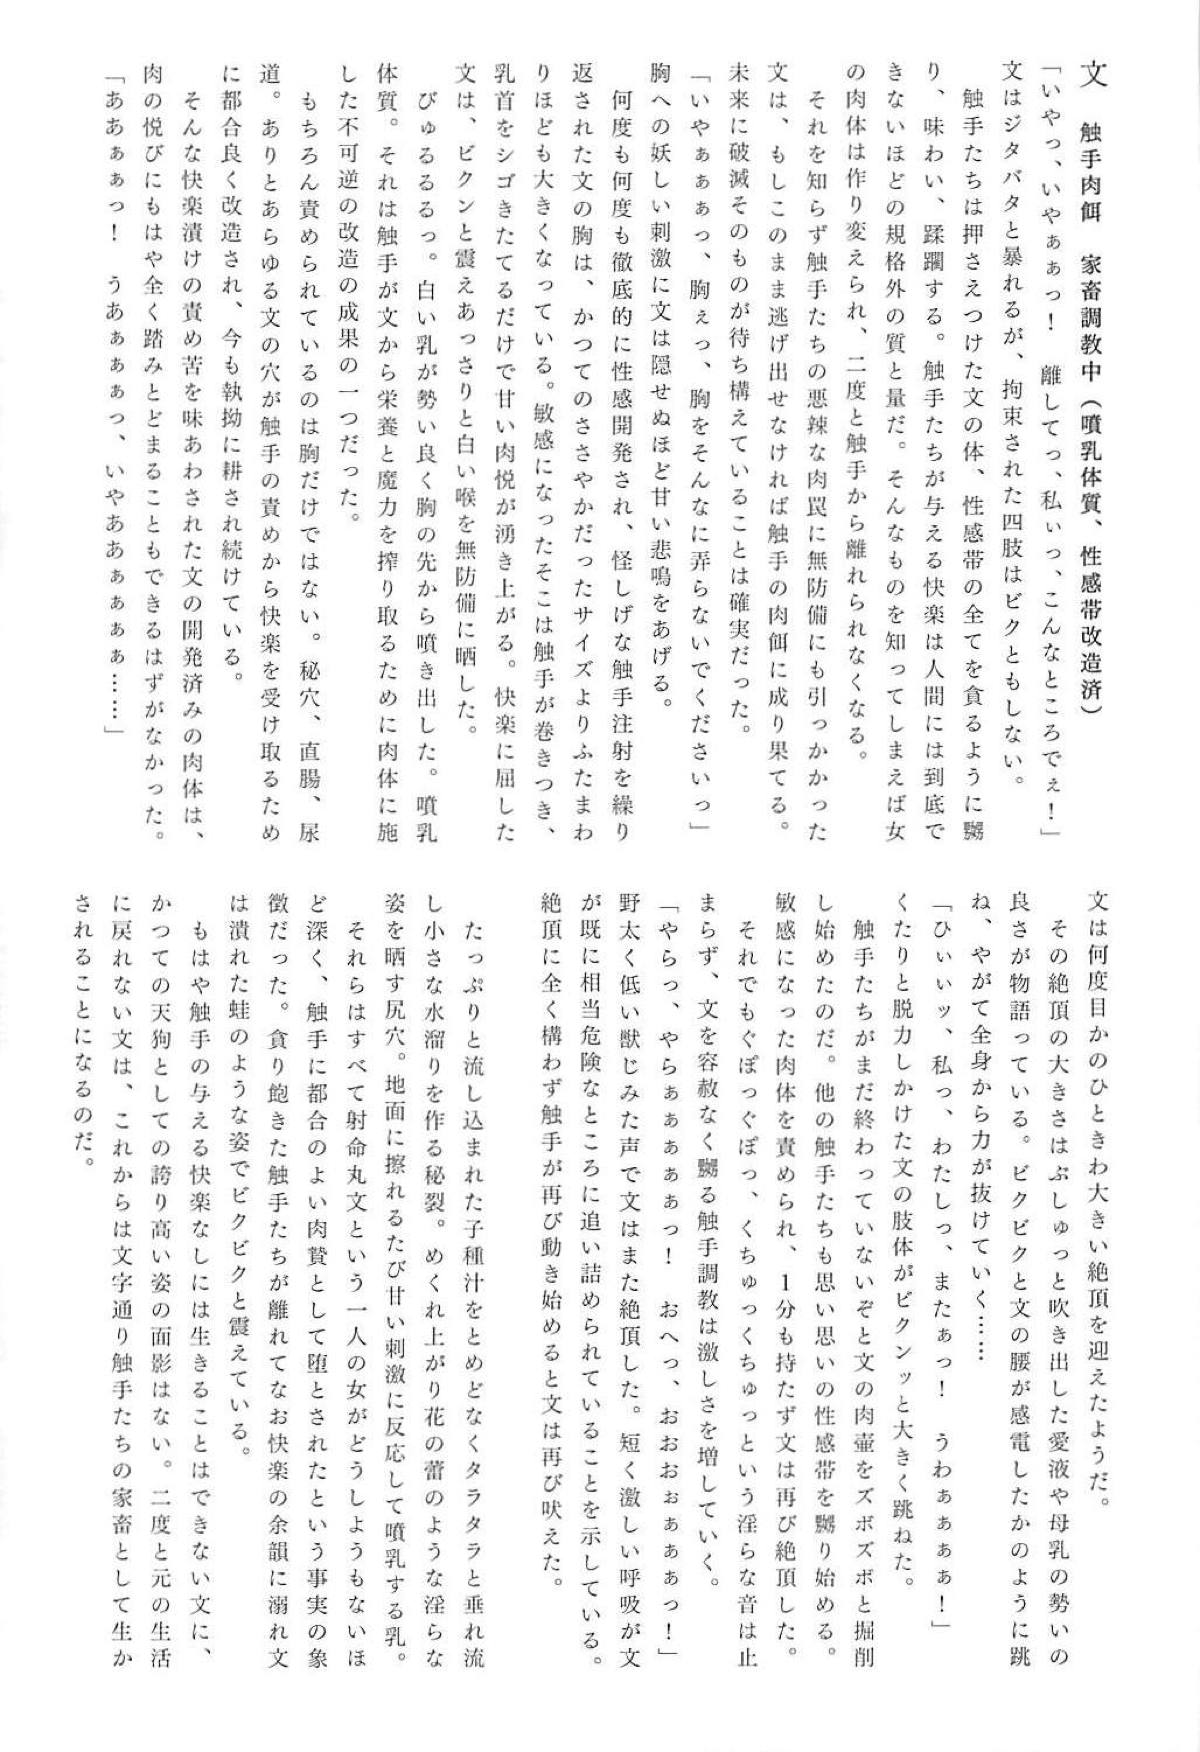 文　触手肉餌　家畜調教中（噴乳体質、性感帯改造済）
「いやっ、いやぁぁっ！　離してっ、私ぃっ、こんなところでぇ！」
文はジタバタと暴れるが、拘束された四肢はビクともしない。
触手たちは押さえつけた文の体、性感帯の全てを貪るように嬲
り、味わい、蹂躙する。触手たちが与える快楽は人間には到底で
きないほどの規格外の質と量だ。そんなものを知ってしまえば女
の肉体は作り変えられ、二度と触手から離れられなくなる。
それを知らず触手たちの悪辣な肉罠に無防備にも引っかかった
文は、もしこのまま逃げ出せなければ触手の肉餌に成り果てる。
未来に破滅そのものが待ち構えていることは確実だった。
「いやぁぁぁっ、胸ぇっ、胸をそんなに弄らないでくださいっ」
胸への妖しい刺激に文は隠せぬほど甘い悲鳴をあげる。
何度も何度も徹底的に性感開発され、怪しげな触手注射を繰り
返された文の胸は、かつてのささやかだったサイズよりふたまわ
りほども大きくなっている。敏感になったそこは触手が巻きつき、
乳首をシゴきたてるだけで甘い肉悦が湧き上がる。快楽に屈した
文は、ビクンと震えあっさりと白い喉を無防備に晒した。
びゅるるるっ。白い乳が勢い良く胸の先から噴き出した。噴乳
体質。それは触手が文から栄養と魔力を搾り取るために肉体に施
した不可逆の改造の成果の一つだった。
もちろん責められているのは胸だけではない。秘穴、直腸、尿
道。ありとあらゆる文の穴が触手の責めから快楽を受け取るため
に都合良く改造され、今も執拗に耕され続けている。
そんな快楽漬けの責め苦を味あわされた文の開発済みの肉体は、
肉の悦びにもはや全く踏みとどまることもできるはずがなかった。
「ああぁぁっ！　うあぁぁぁっ、いやああぁぁぁぁ……」
文は何度目かのひときわ大きい絶頂を迎えたようだ。
その絶頂の大きさはぷしゅっと吹き出した愛液や母乳の勢いの
良さが物語っている。ビクビクと文の腰が感電したかのように跳
ね、やがて全身から力が抜けていく……
「ひぃぃッ、私っ、わたしっ、またぁっ！　うわぁぁぁぁ！」
くたりと脱力しかけた文の肢体がビクンッと大きく跳ねた。
触手たちがまだ終わっていないぞと文の肉壷をズボズボと掘削
し始めたのだ。他の触手たちも思い思いの性感帯を嬲り始める。
敏感になった肉体を責められ、1分も持たず文は再び絶頂した。
それでもぐぽっぐぽっ、くちゅっくちゅっという淫らな音は止
まらず、文を容赦なく嬲る触手調教は激しさを増していく。
「やらっ、やらぁぁぁぁぁっ！　おへっ、おおおぉぁぁぁっ！」
野太く低い獣じみた声で文はまた絶頂した。短く激しい呼吸が文
が既に相当危険なところに追い詰められていることを示している。
絶頂に全く構わず触手が再び動き始めると文は再び吠えた。
たっぷりと流し込まれた子種汁をとめどなくタラタラと垂れ流
し小さな水溜りを作る秘裂。めくれ上がり花の蕾のような淫らな
姿を晒す尻穴。地面に擦れるたび甘い刺激に反応して噴乳する乳。
それらはすべて射命丸文という一人の女がどうしようもないほ
ど深く、触手に都合のよい肉贄として堕とされたという事実の象
徴だった。貪り飽きた触手たちが離れてなお快楽の余韻に溺れ文
は潰れた蛙のような姿でビクビクと震えている。
もはや触手の与える快楽なしには生きることはできない文に、
かつての天狗としての誇り高い姿の面影はない。二度と元の生活
に戻れない文は、これからは文字通り触手たちの家畜として生か
されることになるのだ。